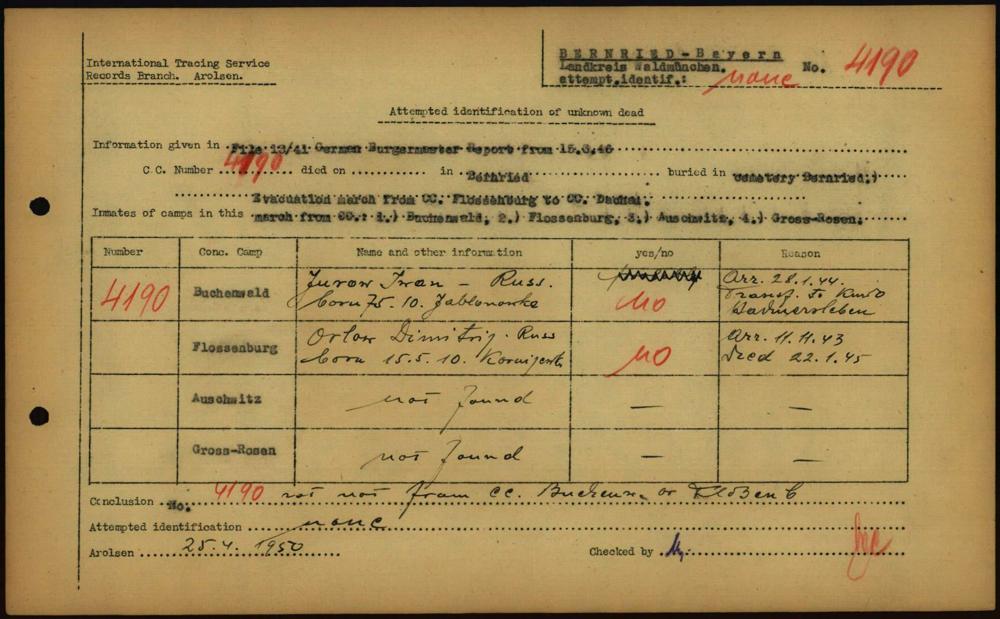 International Tracing Service
Records Branch. Arolsen.
BERNRIED-Bayern
Landkreis Waldmünchen. No. 4190
attempt.identif.: none
Attempted identification of unknown dead
Information given in File 12/41 German Burgermaster Report from 15.3.46
C.C. Number 4190 died on in Bernried buried in cemetery Bernried.)
Evacuation march from CC. Flossenburg to CC. Dachau.
Inmates of camps in this march from CC.: 1.) Buchenwald, 2.) Flossenburg, 3.) Auschwitz, 4.) Gross-Rosen.
Number Conc. Camp Name and other information yes/no Reason
4190 Buchenwald Jurow Iwan - Russ. no Arr. 28.1.44
born 10. Jablonowka Transf. to
Flossenburg Orlow Dimitrij. Russ no Arr. 11.11.43
born 15.5.10. died 22.1.45
Auschwitz not found — —
Gross-Rosen not found — —
Conclusion No. 4190 not from cc. Buchenw. or Floßenb
Attempted identification none
Arolsen 25.4. 1950 Checked by